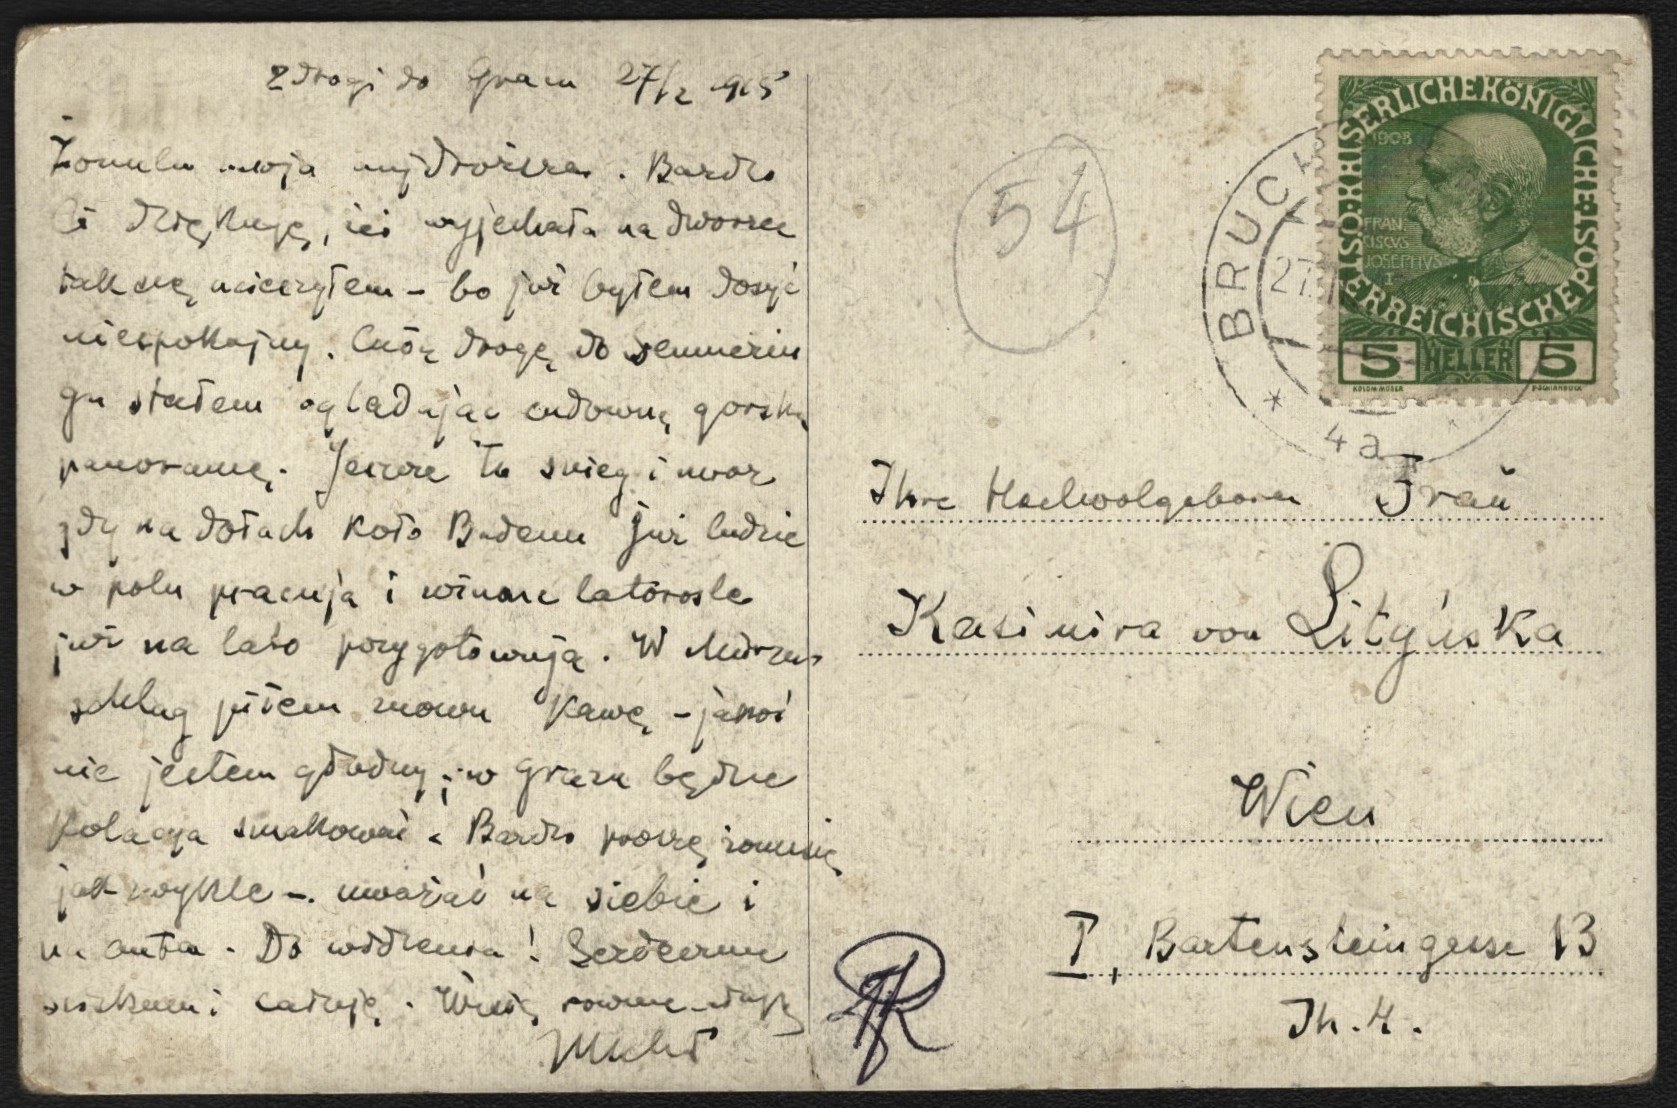 z drogi do Gracu 27/2 915
Żonulu moja najdroższa. Bardzo
Ci dziękuję, iż wyjechała na dworzec
tak się ucieszyłem – bo już byłem dosyć
niespokojny. Całą drogę do Semmerin
gu stałem oglądając cudowną gorską
panoramę. Jeszcze tu snieg i mroz
gdy na dołach koło Badenu już ludzie
w polu pracują i winne latorosle
już na lato przygotowują. W Mürzzu-
schlag piłem znowu kawę – jakoś
nie jestem głodny; w Grazu będzie
kolacya smakować. Bardzo proszę żonusię
jak zwykle –. uważać na siebie i
na auta. Do widzenia! Serdecznie
sciskam i całuję.
54
BRUCK
27.
4a
1908
FRAN
CISCVS
JOSEPHVS
I
KAISERLICHE KÖNIGLICHE ÖSTERREICHISCHE POST
5 HELLER 5
KOLOM. MOSER
Ihre Hochwolgeboren Frau
Kasimira von Lityńska
Wien
I, Bartensteingasse 13
Th. 4.